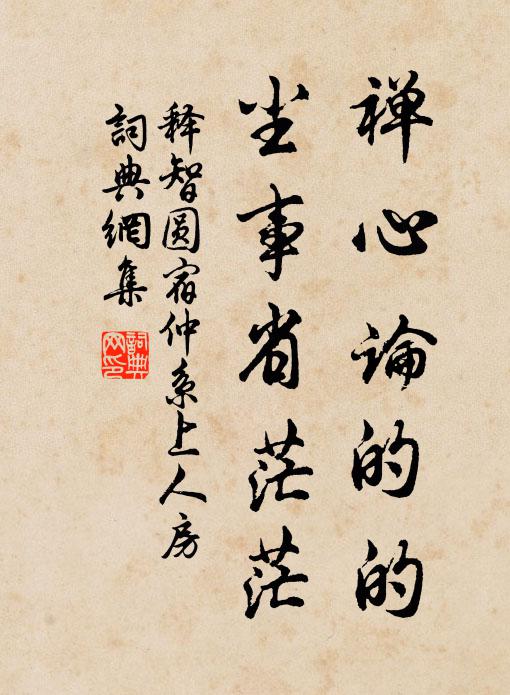 禅心論的的
尘事省茫茫
释智圓宿仲系上人房
詞典網集
詞典网印